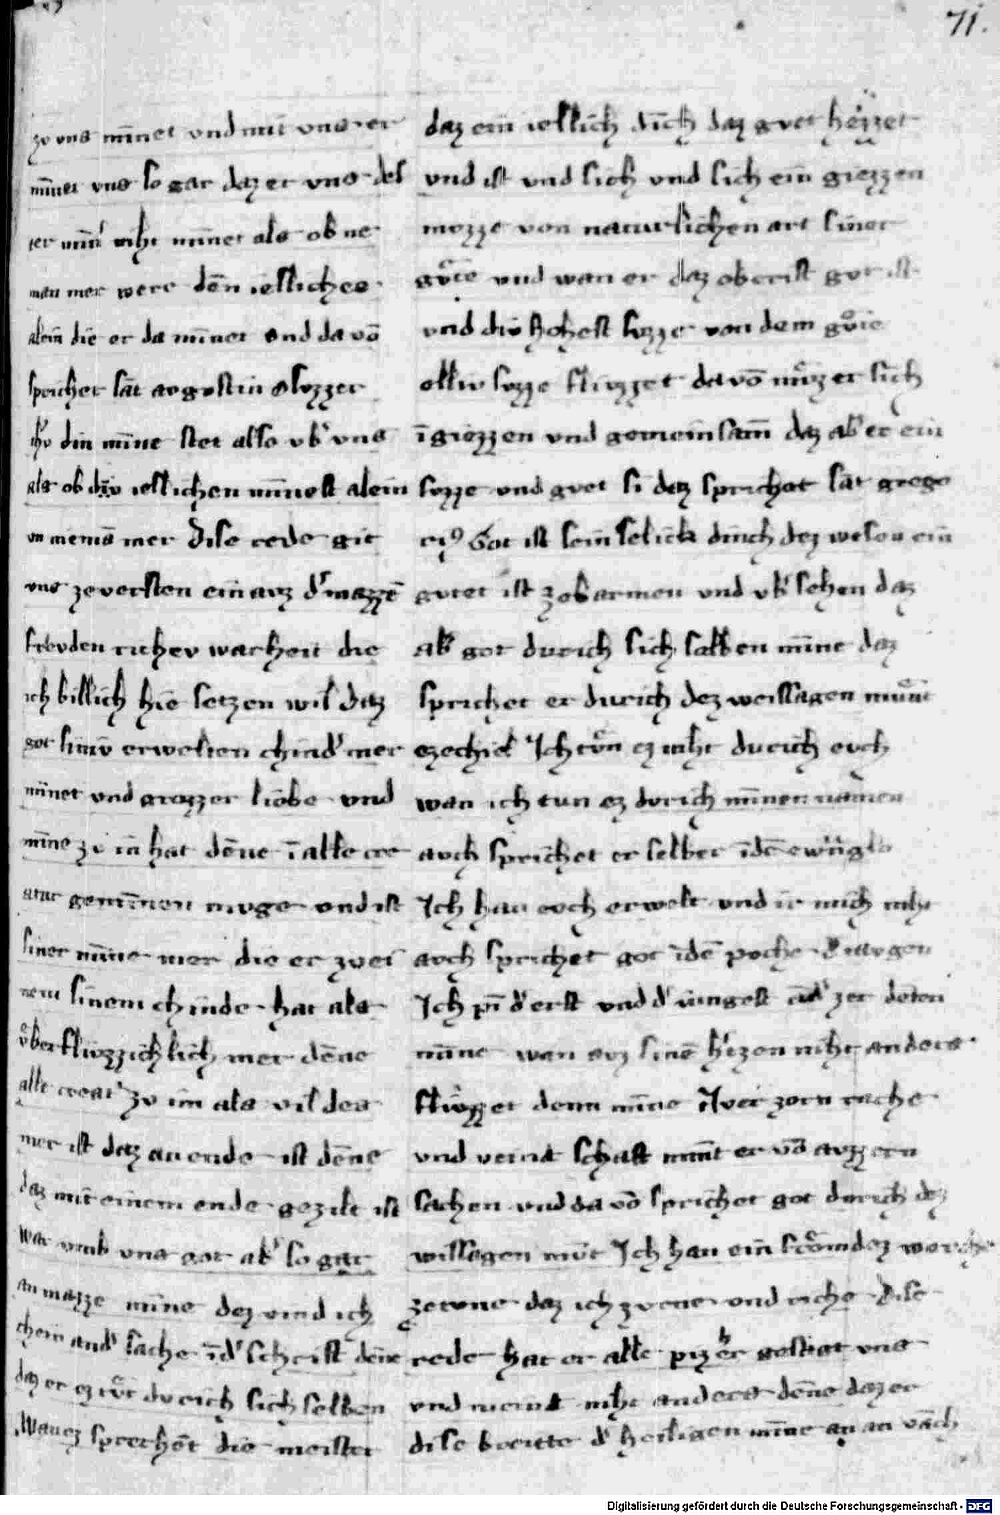 71.
zv vns minnet vnd mit vns er
minnet vns so gar daz er vns des
ter minr niht minnet als ob ne
man mer were denn iesliches
alein die er da minnet vnd da vō
sprichet sāt avgostin o svzzer
din minne stet also vb' vns
als ob dv ieslichen minnest alein
vn niemās mer Dise rede git
vns zeversten ein avz d' mazzē
frevden richev warheit die
ich billich hie setzen wil daz
got siniv erwelten chind' mer
minnet vnd grozzer liebe vnd
minne zv in hat denne ī alle cre
atur gewinnen mvge vnd ist
siner minne mer die er zv ei
nem sinem chinde hat als
vberflvzzichlich mer denne
alle creat' zv im als vil des
mer ist daz an ende ist denne
daz mit einem ende gezilt ist
war vmb vns got ab' so gar
an mazze minne dez vind ich
chein and' sache in d' schrift denne
daz er ez tvt dvrich sich selben
Wan ez sprechēt die meister
daz ein ieslich dinch daz gvet heizzet
vnd ist vnd sich vnd sich ein giezzen
mozze von naturlichen art siner
gvte vnd wan er daz oberist gvt ist
vnd div hohest svzze von dem gvte
elliv svzze flivzzet da vō mvz er sich
ī giezzen vnd gemeinsam daz ab' er ein
svzze vnd gvet si daz sprichet sāt grego
ri9 Got ist sein selick dinch dez wesen ein
gvtet ist zobarmen vnd vb'sehen daz
ab' got dvrich sich selben minne daz
sprichet er durich dez weissagen mvnt
ezechiel Ich tvn ez niht durich evch
wan ich tun ez dvrich minen namen
avch sprichet er selber ī dē ewāglo
Ich han evch erwelt vnd ir mich niht
avch sprichet got ī dē pvche d' tavgen
Ich pī d' erst vnd d' ivngest
minne wan avz sinē h'tzen niht anders
flivzzet denn minne zorn rache
vnd veintschaft nimt er vō avzzern
sachen vnd da vō sprichet got dvrich dez
wissagen mvt Ich han ein fromdez werche
zetvne daz ich zvrne vnd riche Dise
rede hat er alle pizher gestiat vns
vnd meint niht anders denne daz er
dise breitte d' heiligen minne an an vāch
Digitalisierung gefördert durch die Deutsche Forschungsgemeinschaft - DFG